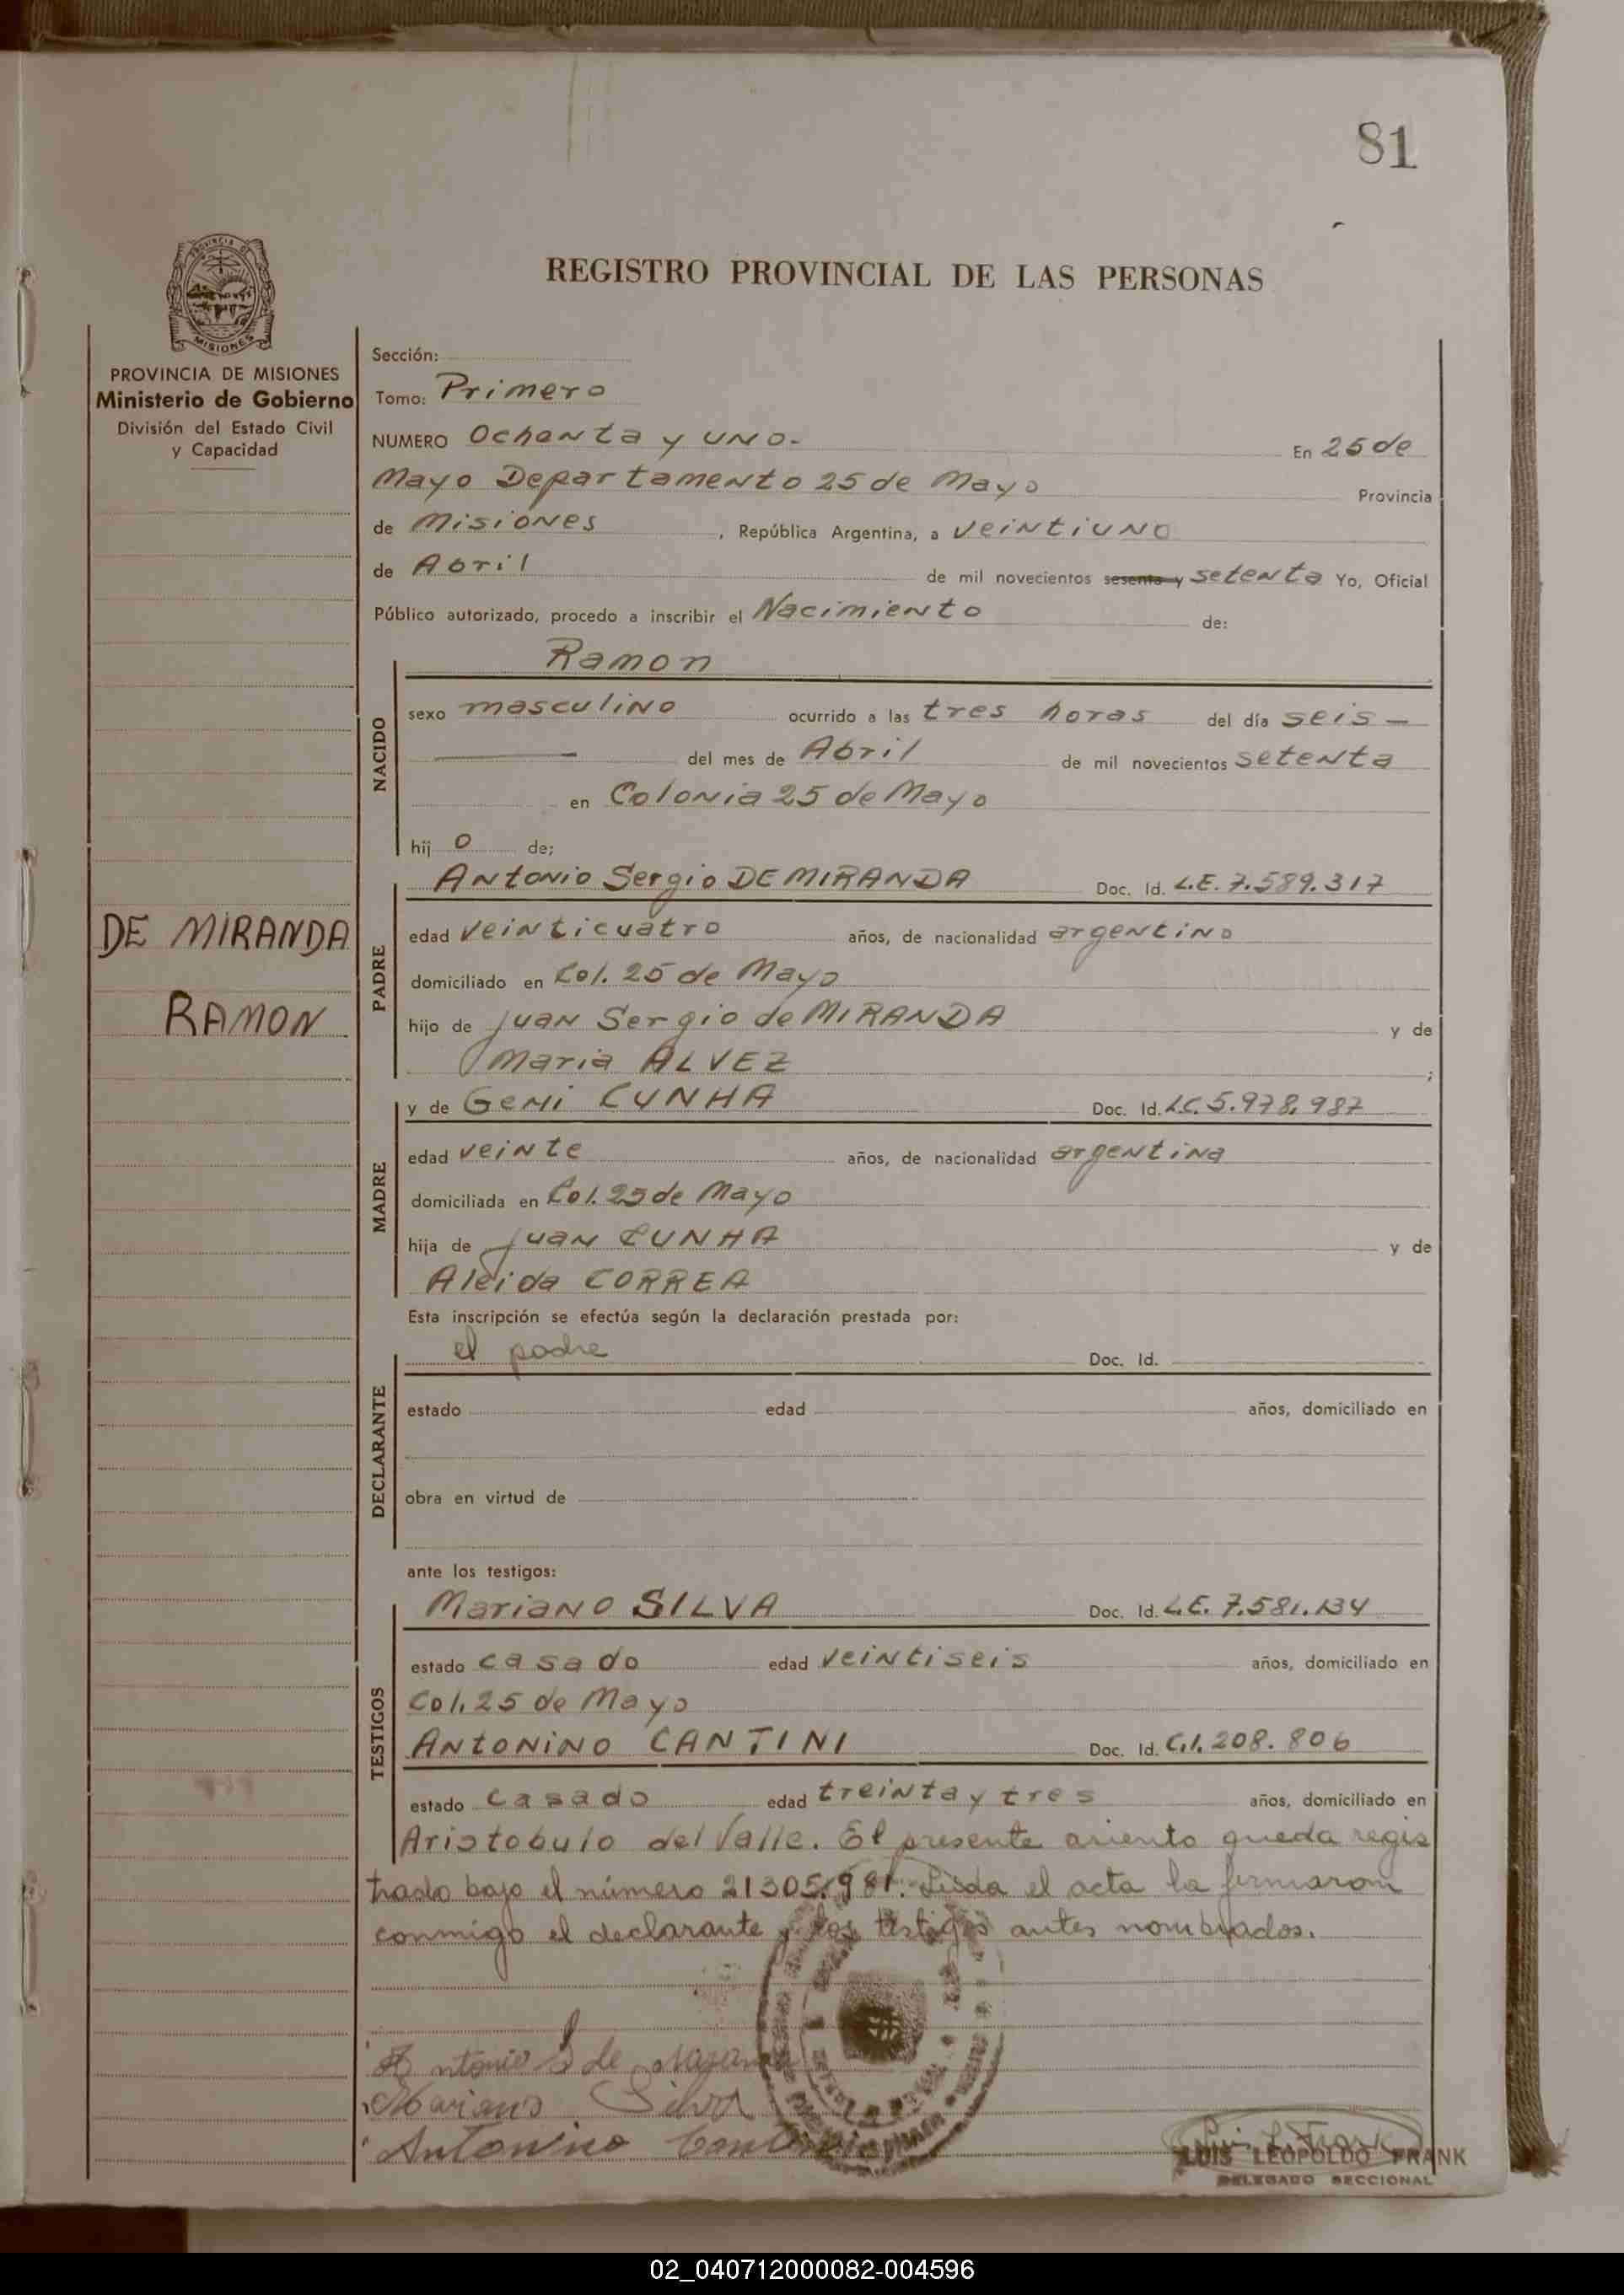 81
PROVINCIA DE
MISIONES
REGISTRO PROVINCIAL DE LAS PERSONAS
PROVINCIA DE MISIONES
Ministerio de Gobierno
División del Estado Civil
y Capacidad
DE MIRANDA
RAMON
Sección:
Tomo: Primero
NUMERO Ochenta y uno.- En 25 de
Mayo Departamento 25 de Mayo Provincia
de Misiones , República Argentina, a veintiuno
de Abril de mil novecientos sesenta y setenta Yo, Oficial
Público autorizado, procedo a inscribir el Nacimiento de:
NACIDO
Ramon
sexo masculino ocurrido a las tres horas del día seis —
— del mes de Abril de mil novecientos setenta
en Colonia 25 de Mayo
hij o de;
PADRE
Antonio Sergio DE MIRANDA Doc. Id. L.E. 7.589.317
edad veinticuatro años, de nacionalidad argentino
domiciliado en Col. 25 de Mayo
hijo de Juan Sergio de MIRANDA y de
Maria ALVEZ ;
MADRE
y de Geni CUNHA Doc. Id. L.C. 5.978.987
edad veinte años, de nacionalidad argentina
domiciliada en Col. 25 de Mayo
hija de Juan CUNHA y de
Aleida CORREA
Esta inscripción se efectúa según la declaración prestada por:
DECLARANTE
el padre Doc. Id.
estado edad años, domiciliado en
obra en virtud de
ante los testigos:
TESTIGOS
Mariano SILVA Doc. Id. L.E. 7.581.134
estado casado edad veintiseis años, domiciliado en
Col. 25 de Mayo
Antonino CANTINI Doc. Id. C.I. 208.806
estado casado edad treinta y tres años, domiciliado en
Aristobulo del Valle. El presente asiento queda regis
trado bajo el número 21305.981. Leida el acta la firmaron
conmigo el declarante y los testigos antes nombrados.
Antonio S de
Mariano Silva
Antonino
LUIS LEOPOLDO FRANK
DELEGADO SECCIONAL
02_040712000082-004596